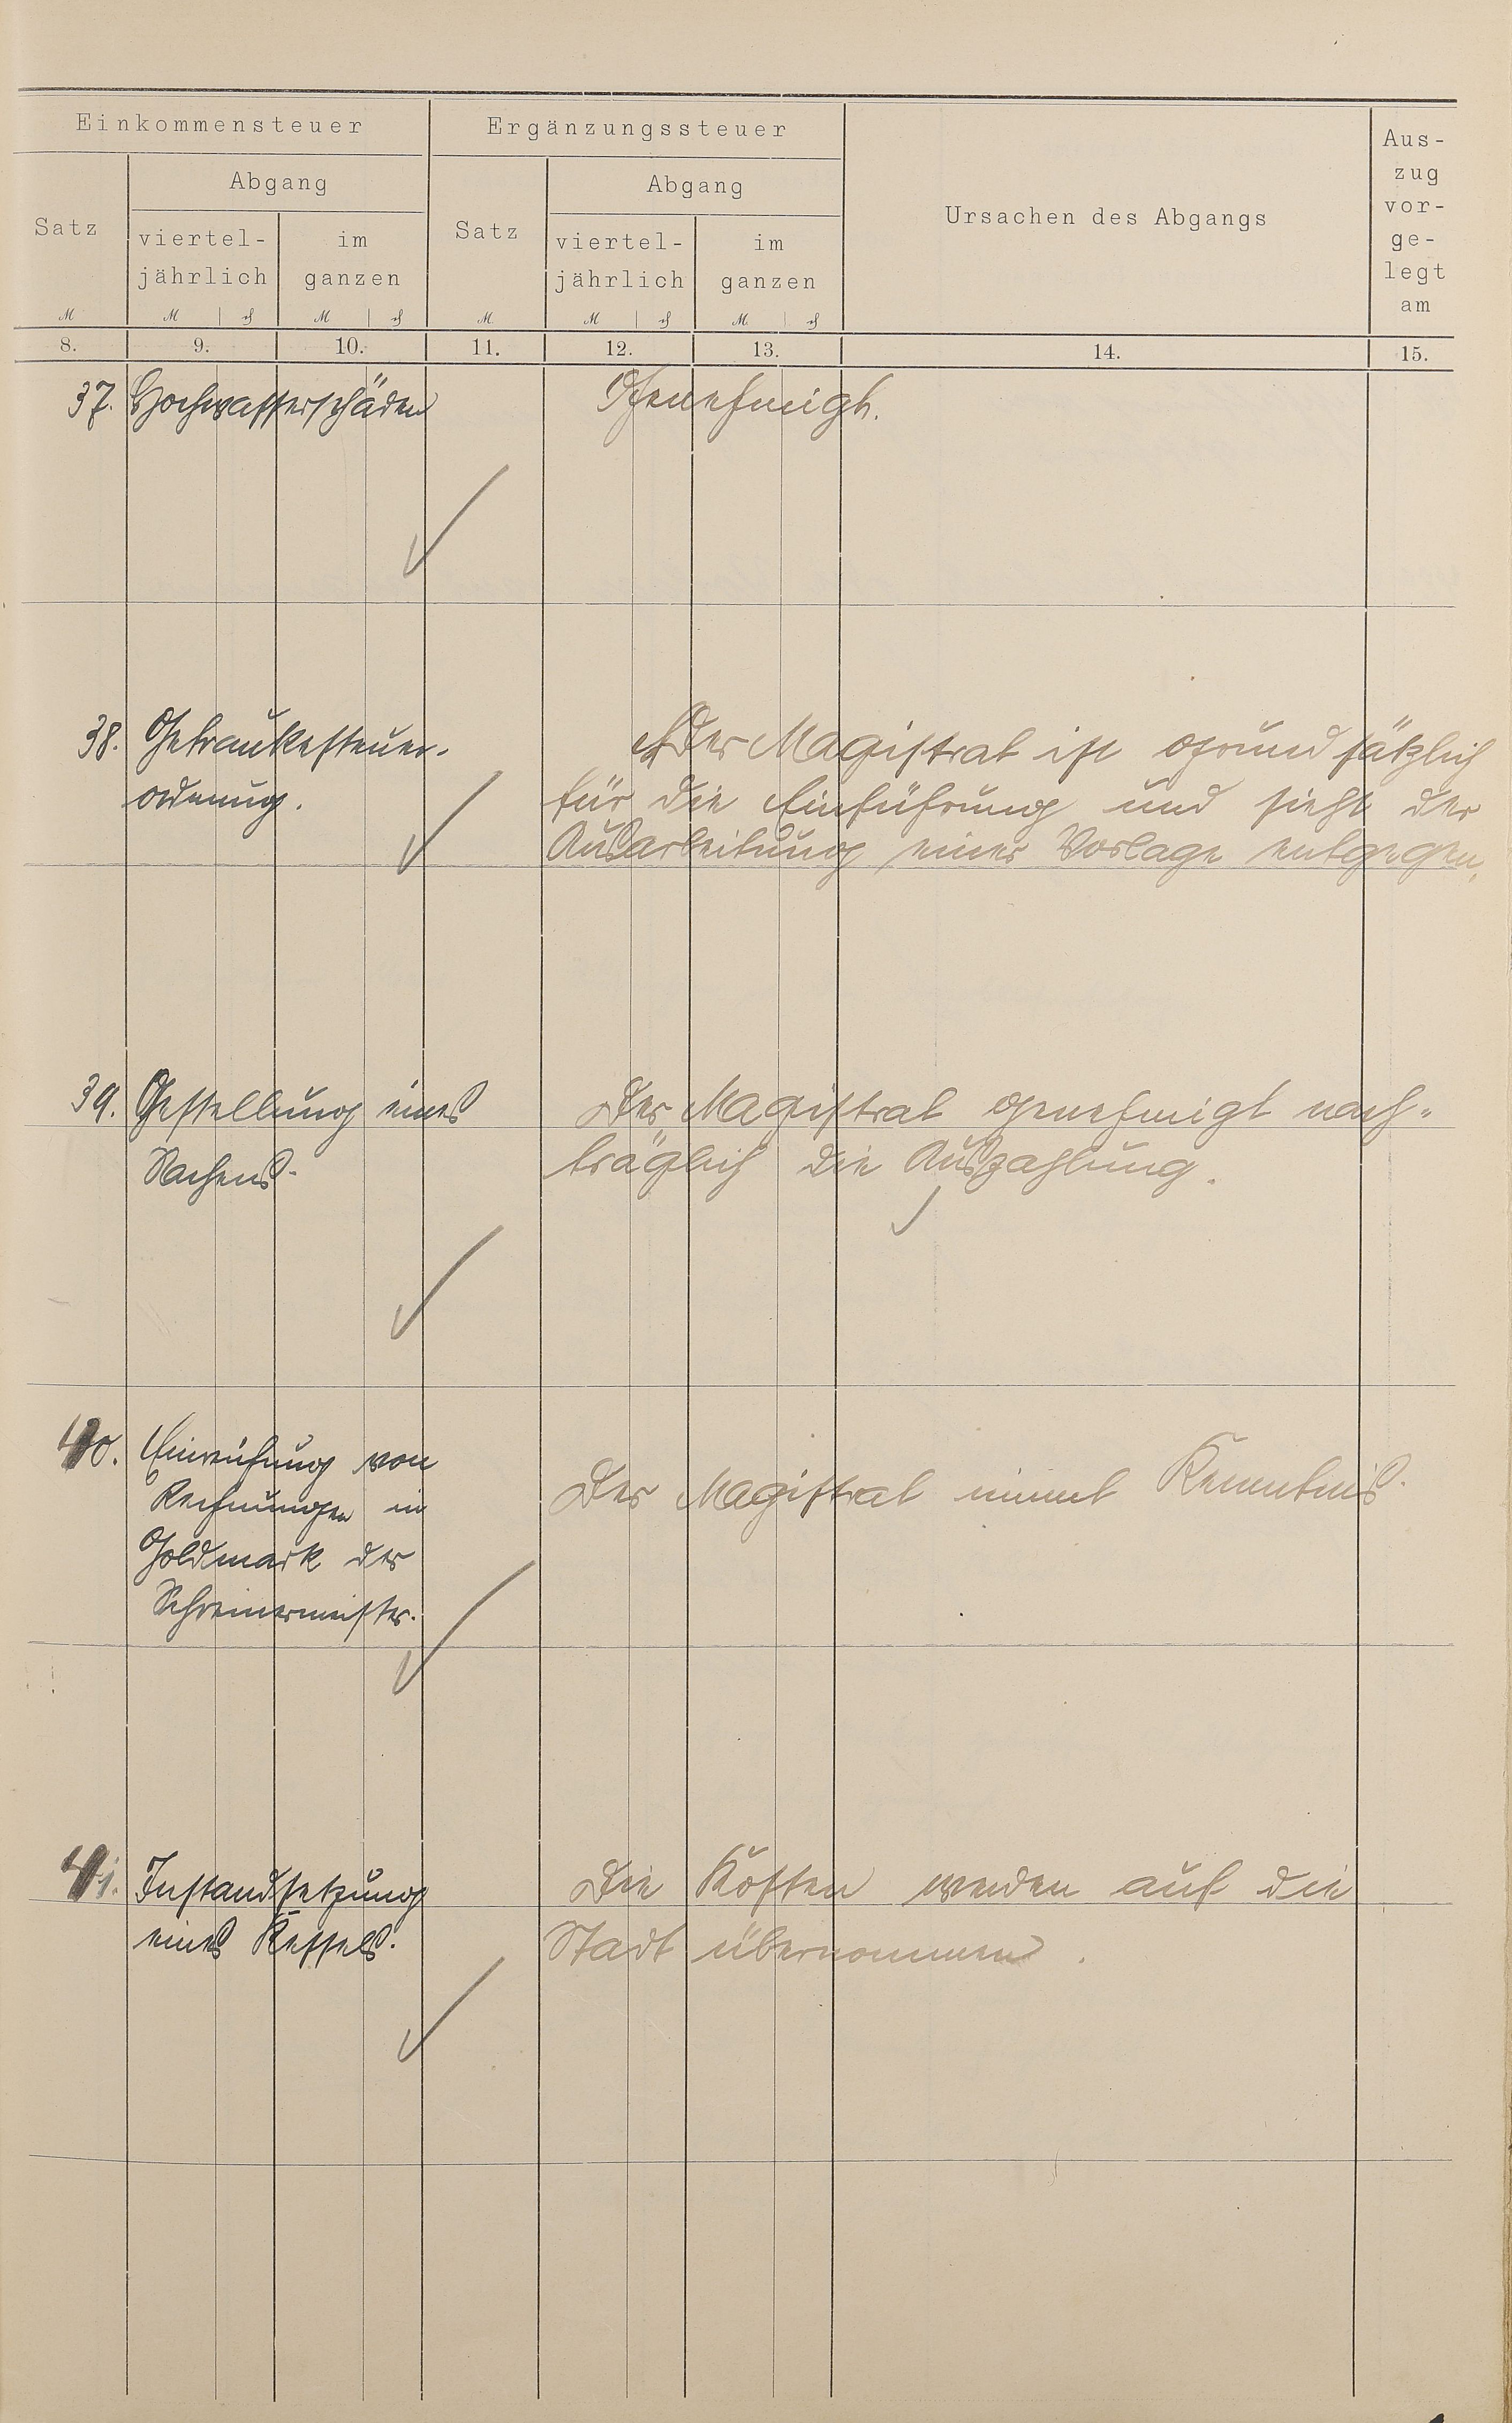 Einkommensteuer
Ergänzungssteuer
Ursachen des Abgangs
Aus-
zug
vor-
ge-
legt
am
Satz
Abgang
viertel-
jährlich
im
ganzen
Satz
Abgang
viertel-
jährlich
im
ganzen
M M ₰ M ₰ M M ₰ M ₰
8. 9. 10. 11. 12. 13. 14. 15.
37. Hochwasserschäden Genehmigt.
38. Getränkesteuer-
ordnung.
Der Magistrat ist grundsätzlich
für die Einführung und sieht der
Ausarbeitung einer Vorlage entgegen.
39. Gestellung eines
Nachens.
Der Magistrat genehmigt nach-
träglich die Auszahlung.
40. Einreichung von
Rechnungen in
Goldmark der
Schreinermeister.
Der Magistrat nimmt Kenntnis.
41. Instandsetzung
eines Kessels.
Die Kosten werden auf die
Stadt übernommen.